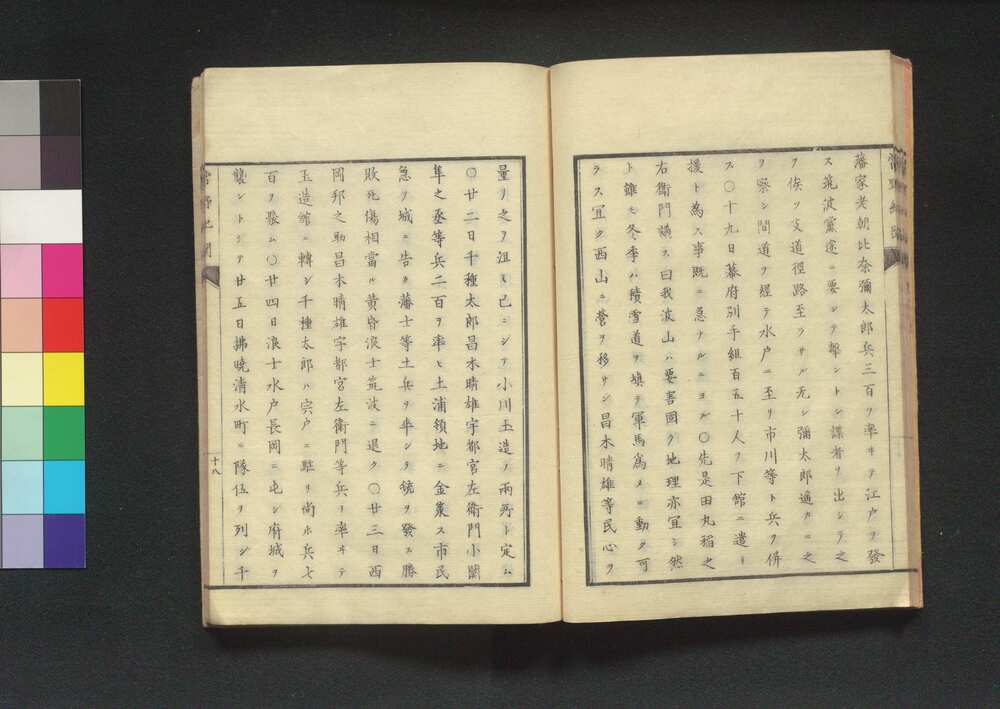 藩家老朝比奈彌太郎兵三百ヲ率ヰテ江戸ヲ發
ス筑波黨途ニ要シテ撃ントシ諜者ヲ出シテ之
ヲ俟ツ支道徑路至ラサル无シ彌太郎遥カニ之
ヲ察シ間道ヲ經テ水户ニ至リ市川等ト兵ヲ併
ス〇十九日幕府別手組百五十人ヲ下館ニ遣シ
援ト為ス事既ニ急ナルニヨル〇先是田丸稲之
右衛門議ス曰我波山ハ要害固ク地理亦宜シ然
ト雖モ冬季ハ積雪道ヲ填テ軍馬為メニ動ク可
ラス宜ク西山ニ營ヲ移サン昌木晴雄等民心ヲ
量ヲ之ヲ沮ム已ニシテ小川玉造ノ兩所ト定ム
〇廿二日千種太郎昌木晴雄宇都宮左衛門小圀
隼之丞等兵二百ヲ率ヒ土浦領地ニ金策ス市民
急ヲ城ニ告ク藩士等土兵ヲ率シテ銃ヲ發ス勝
敗死傷相當ル黄昏浪士筑波ニ退ク〇廿三日西
岡邦之助昌木晴雄宇都宮左衛門等兵ヲ率ヰテ
玉造館ニ轉シ千種太郎ハ宍户ニ駐リ尚ホ兵七
百ヲ聚ム〇廿四日浪士水户長岡ニ屯シ府城ヲ
襲ントシテ廿五日拂曉清水町ニ隊伍ヲ列シ千
十八